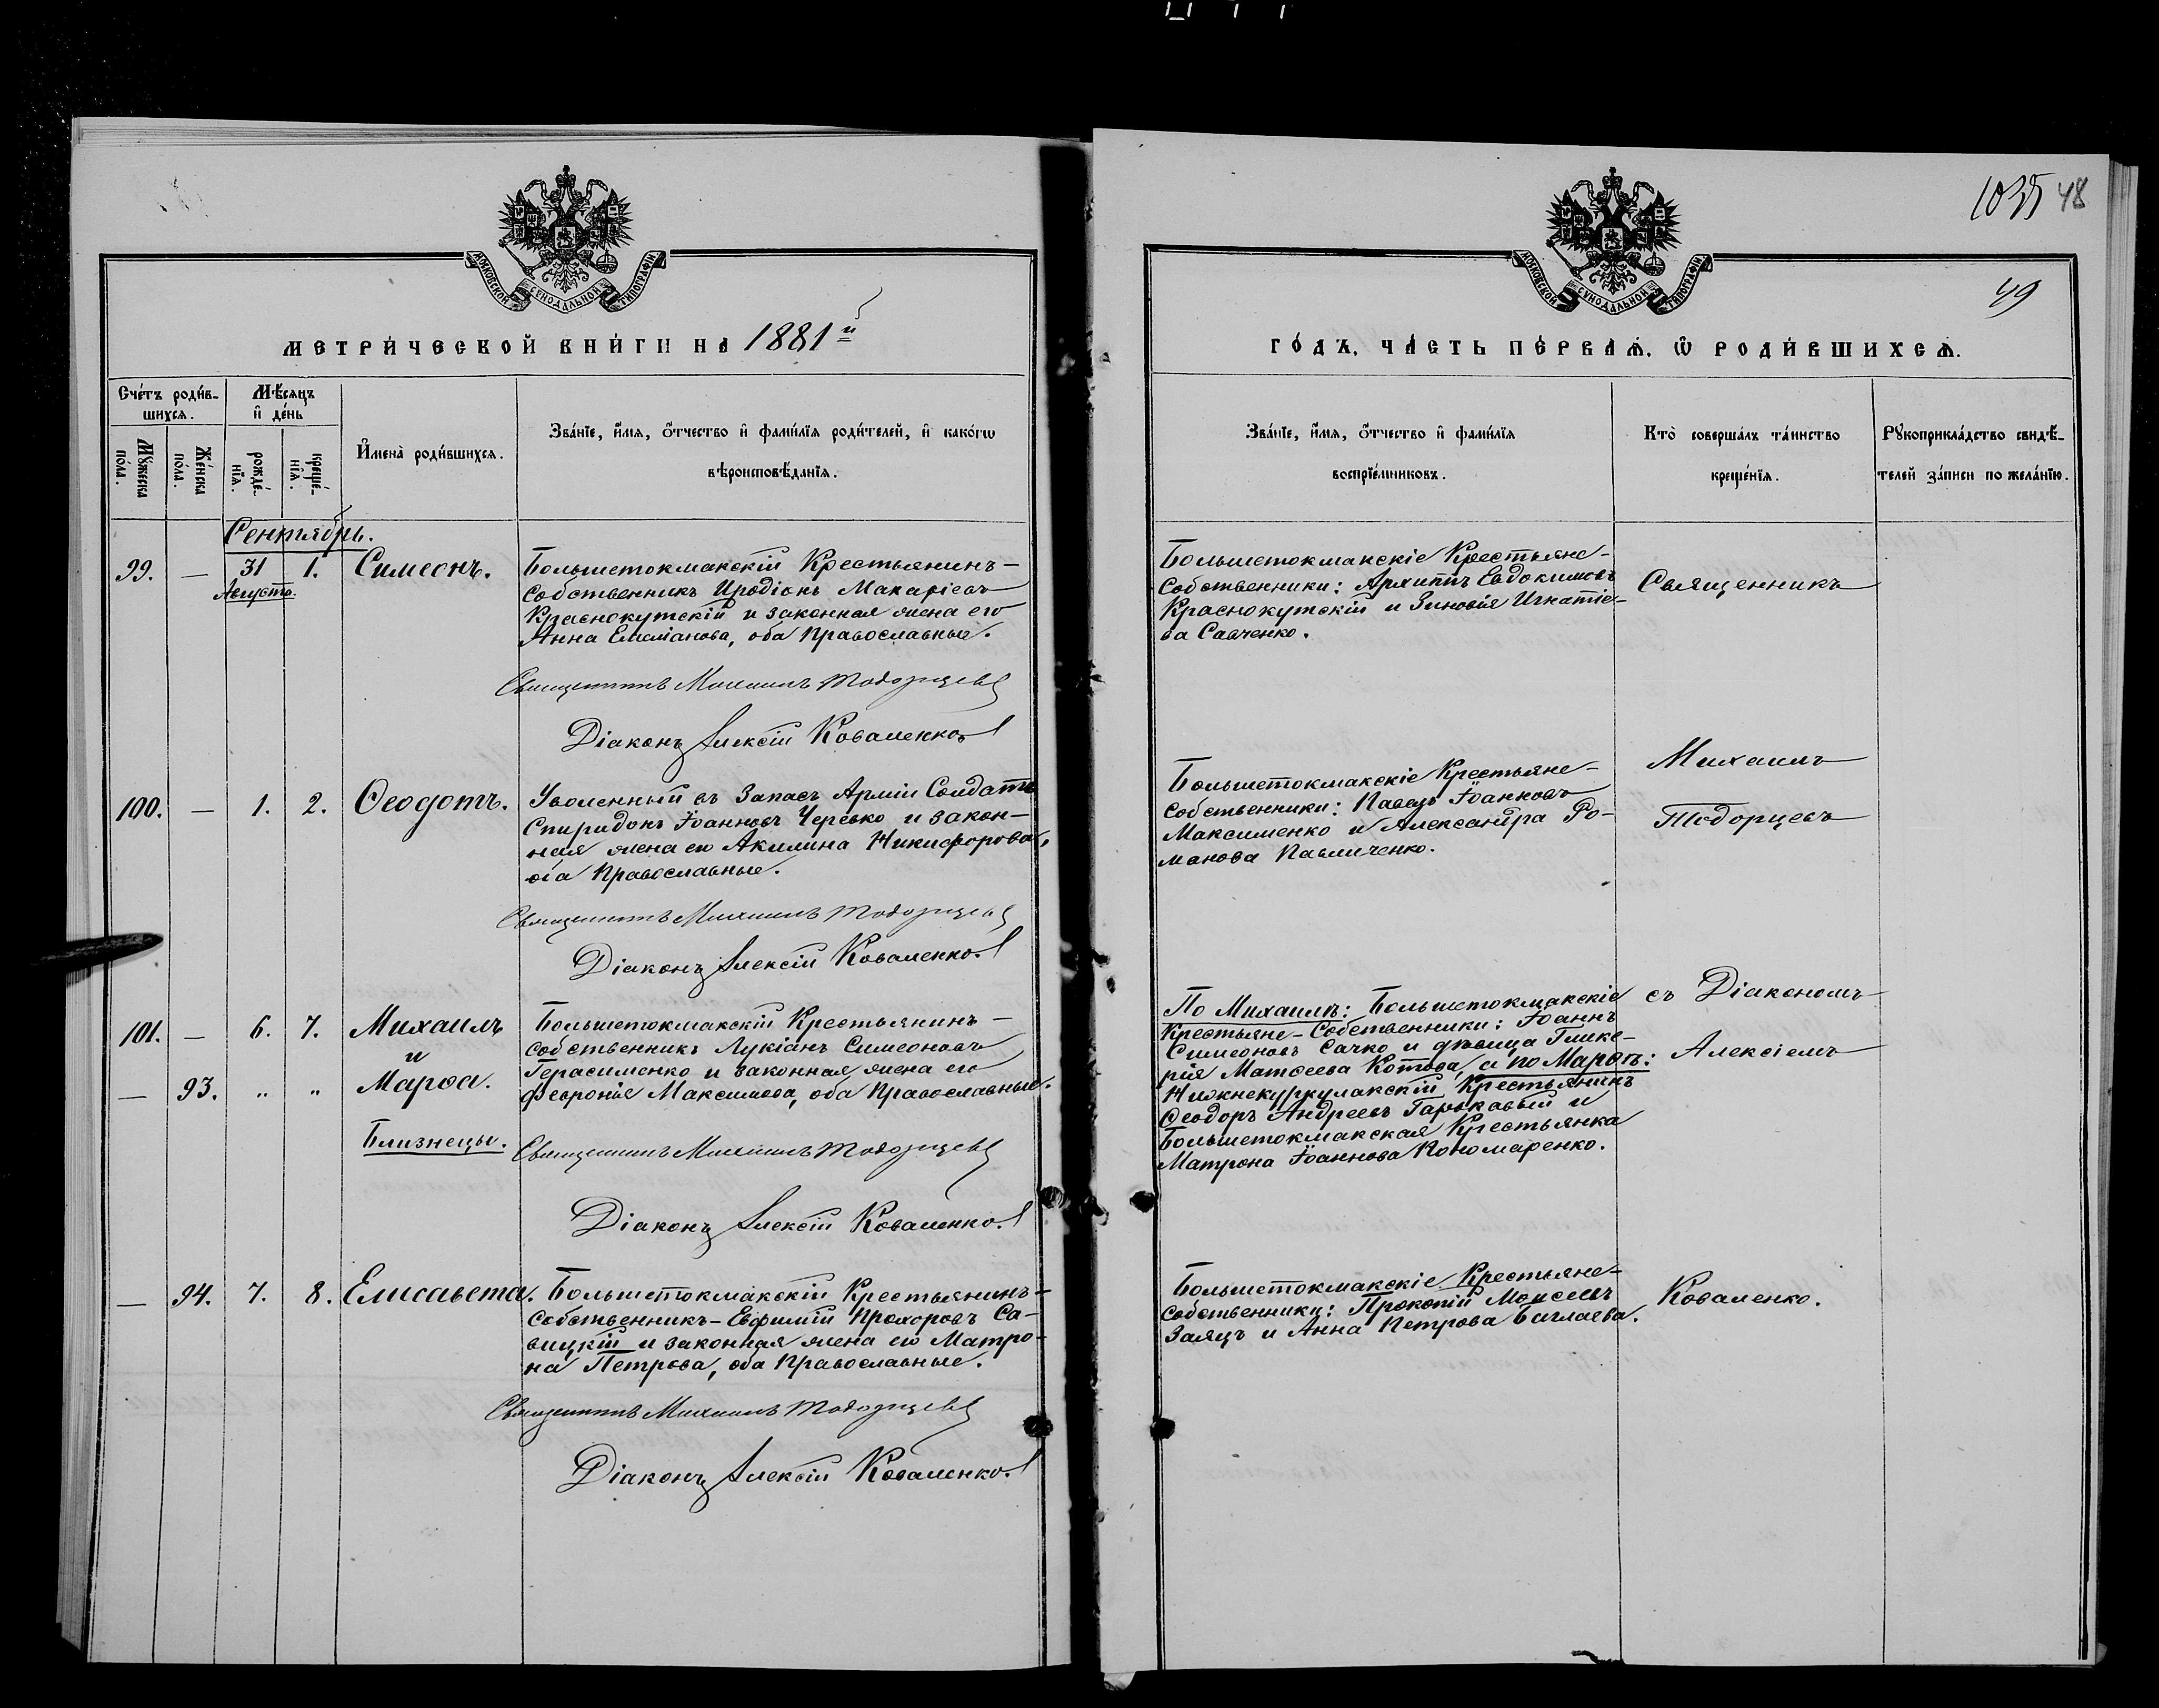 1035 48
49
МОСКОВСКОЙ СѴНОДАЛЬНОЙ ТИПОГРАФІИ
МОСКОВСКОЙ СѴНОДАЛЬНОЙ ТИПОГРАФІИ
МЕТРИ́ЧЕСКОЙ КНИ́ГИ НА 1881й
ГО́ДЪ, ЧА́СТЬ ПЕ́РВАѦ, Ѿ РОДИ́ВШИХСѦ.
Сче́тъ роди́в-
шихсѧ.
Мꙋ́жеска
по́ла.
Же́нска
по́ла.
Мѣ́сѧцъ
и҆ де́нь
рожде́-
нїѧ.
креще́-
нїѧ.
И҆мена̀ роди́вшихсѧ.
Зва́нїе, и҆́мѧ, ѻ҆́тчество и҆ фами́лїѧ роди́телей, и҆ како́гѡ
вѣроисповѣ́данїѧ.
Зва́нїе, и҆́мѧ, ѻ҆́тчество и҆ фами́лїѧ
воспрїе́мниковъ.
Кто̀ соверша́лъ та́инство
креще́нїѧ.
Рꙋкоприкла́дство свидѣ́-
телей за́писи по жела́нїю.
Сентябрь.
99. — 31 1. Симеонъ.
Августа.
Большетокмакскій Крестьянинъ-
собственникъ Иродіонъ Макаріевъ
Краснокутскій и законная жена его
Анна Емеліанова, оба Православные.
Священникъ Михаилъ Тодорцевъ
Діаконъ Алексій Коваленко.
Большетокмакскіе Крестьяне-
собственники: Архиппъ Евдокимовъ
Краснокутскій и Зиновія Игнатіе-
ва Савченко.
Священникъ
100. — 1. 2. Ѳеодотъ.
Уволенный въ Запасъ Арміи Солдатъ
Спиридонъ Іоанновъ Черевко и закон-
ная жена его Акилина Никифорова,
оба Православные.
Священникъ Михаилъ Тодорцевъ
Діаконъ Алексій Коваленко.
Большетокмакскіе Крестьяне-
собственники: Павелъ Іоанновъ
Максименко и Александра Ро-
манова Павличенко.
Михаилъ
Тодорцевъ
101. — 6. 7. Михаилъ
и
— 93. " " Марѳа.
Близнецы.
Большетокмакскій Крестьянинъ-
собственникъ Лукіанъ Симеоновъ
Герасименко и законная жена его
Февронія Максимова, оба Православные.
Священникъ Михаилъ Тодорцевъ
Діаконъ Алексій Коваленко.
По Михаилѣ: Большетокмакскіе
Крестьяне-Собственники: Іоаннъ
Симеоновъ Сачко и дѣвица Глике-
рія Матѳеева Котова, а по Марѳѣ:
Нижнекуркулакскій Крестьянинъ
Ѳеодоръ Андреевъ Гарькавый и
Большетокмакская Крестьянка
Матрона Іоаннова Пономаренко.
съ Діакономъ
Алексіемъ
— 94. 7. 8. Елисавета.
Большетокмакскій Крестьянинъ-
собственникъ-Евфимій Прохоровъ Са-
вицкій и законная жена его Матро-
на Петрова, оба Православные.
Священникъ Михаилъ Тодорцевъ
Діаконъ Алексій Коваленко.
Большетокмакскіе Крестьяне-
собственники: Прокопій Моисеевъ
Заяцъ и Анна Петрова Баглаева.
Коваленко.